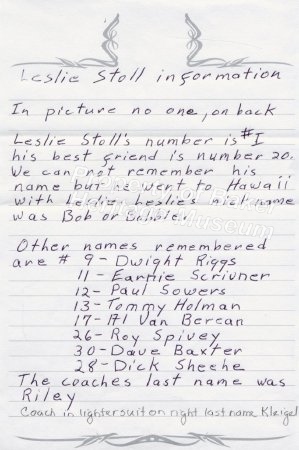 Leslie Stoll information
In picture no one, on back
Leslie Stoll's number is #1
his best friend is number 20.
We can not remember his
name but he went to Hawaii
with Leslie. Leslie's nickname
was Bob or Bobbie.
Other names remembered
are # 9 - Dwight Riggs
11 - Earnie Scrivner
12 - Paul Sowers
13 - Tommy Holman
17 - Al Van Bercan
26 - Roy Spivey
30 - Dave Baxter
28 - Dick Sheehe
The coaches last name was
Riley
Coach in lighter suit on right last name Kleigel